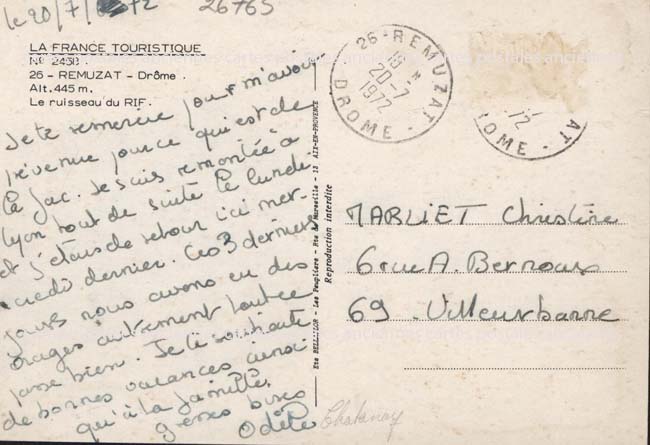 le 20/7/72
26765
LA FRANCE TOURISTIQUE
N° 2458
26 - REMUZAT - Drôme
Alt. 445 m.
Le ruisseau du RIF.
Je te remercie pour m'avoir
prévenue pour ce qui est de
la fac. Je suis remontée à
Lyon tout de suite le lundi
et j'étais de retour ici mer-
credi dernier. Ces 3 derniers
jours nous avons eu des
orages autrement tout se
passe bien. Je te souhaite
de bonnes vacances ainsi
qu'à ta famille.
grosses bises
Odile
Ets BELLEVUE - Les Peupliers - Rte de Marseille - 13 AIX-EN-PROVENCE
Reproduction interdite
26 - REMUZAT
18 H
20-7
1972
DROME
72
AT
OME
MARLIET Christine
6 rue A. Bernoux
69 - Villeurbanne
Chatanay